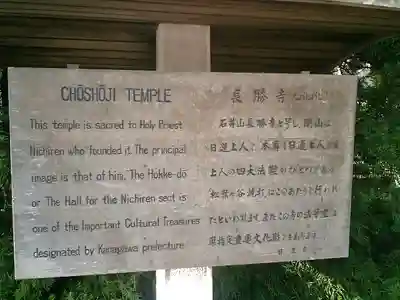 CHŌSHŌJI TEMPLE
This temple is sacred to Holy Priest
Nichiren who founded it. The principal
image is that of him. The Hokke-dō
or The Hall for the Nichiren sect is
one of the Important Cultural Treasures
designated by Kanagawa prefecture
長勝寺
石井山長勝寺と号し、開山は
日蓮上人で、本尊は日蓮上人
上人の四大法難のひとつである
松葉ヶ谷焼打はこのあたりで行われ
たといわれます。またこの寺の法華堂は
県指定重要文化財であります。